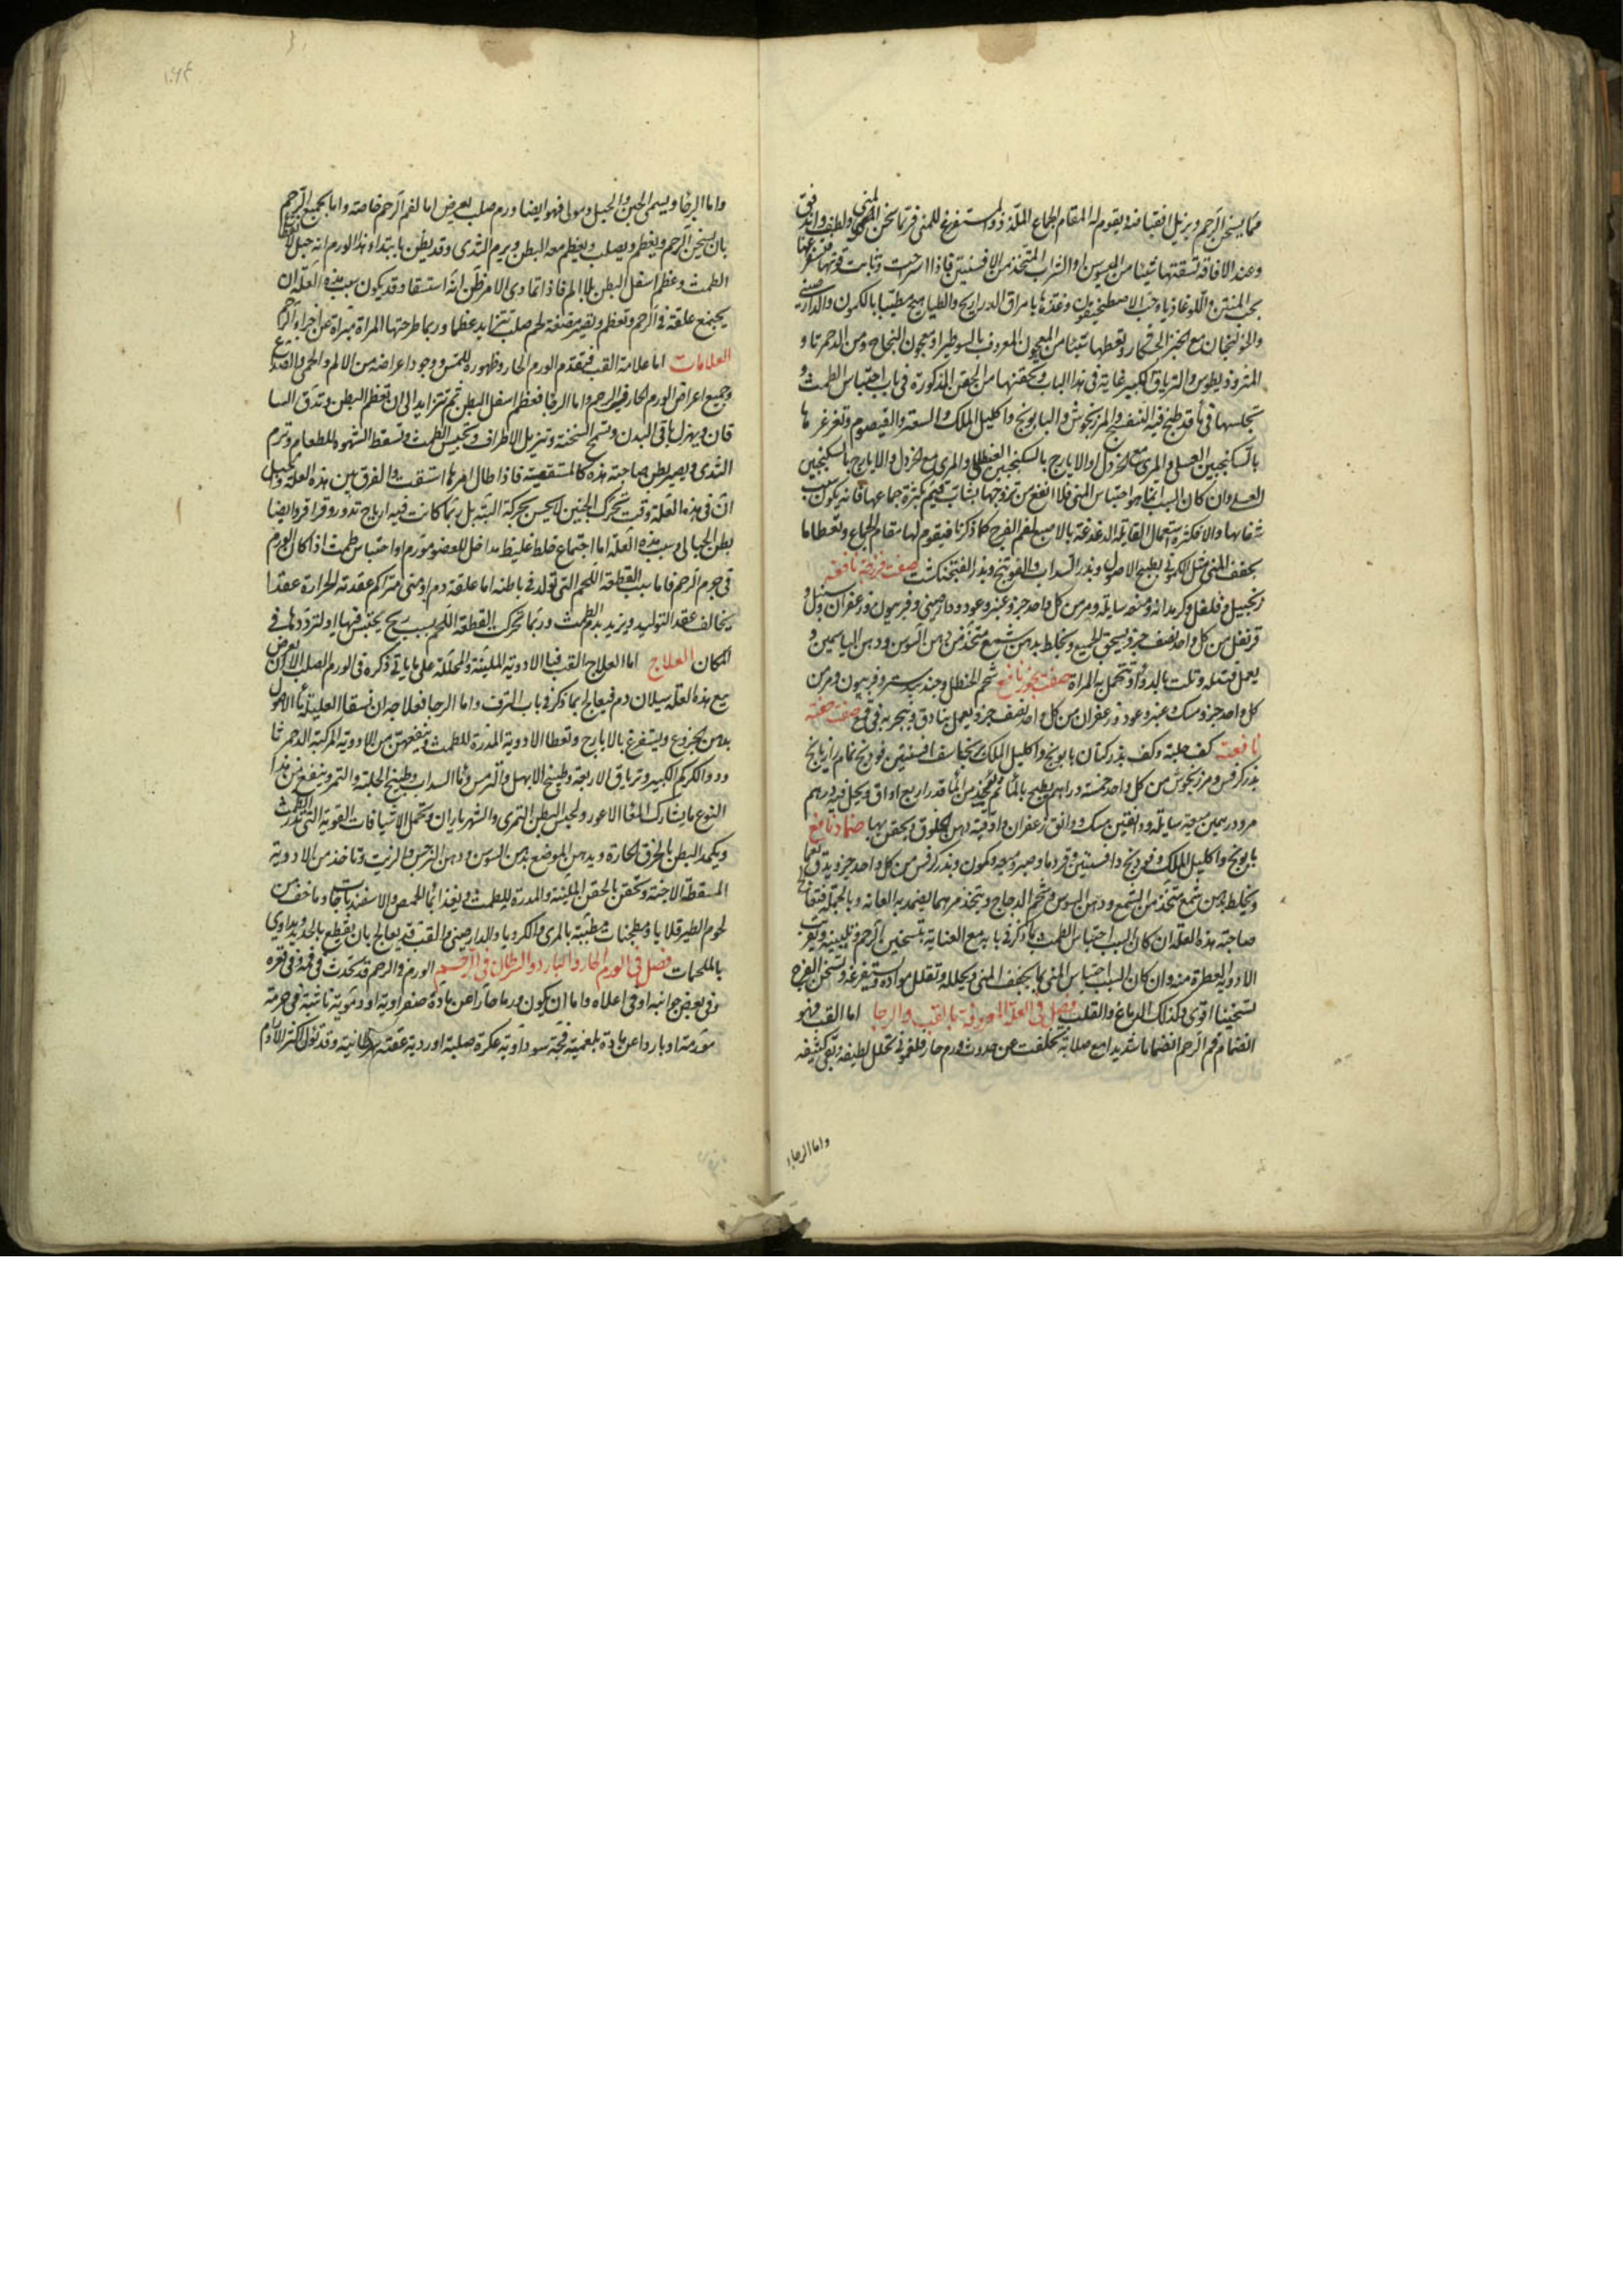 مما يسخن الرحم ويزيل انقباضه ويقوم له المقام الجماع الملذذ والمستفرغ للمنى فربما سخن المنى ولطف واندفق
وعند الافاقة تسقيها شيئا من الميسوسن او الشراب المتخذ من الافسنتين فاذا استراحت وثابت قوتها فتستفرغها
بحب المنتن واللوغاذيا وحب الاصطمخيقون وغذها بامراق الدراريج والطياهيج مطيبا بالكمون والدارصينى
والخولنجان مع الخبز الخشكار وتعطيها شيئا من المعجون المعروف بالسوطيرا ومعجون النجاح ومن الدحمرتا و
المثروذيطوس والترياق الكبير غاية فى هذا الباب وتحقنها من الحقن المذكورة فى باب احتباس الطمث و
تجلسها فى ماء قد طبخ فيه الشيح والمرزنجوش والبابونج واكليل الملك والسعتر والقيصوم وتغرغرها
بالسكنجبين العسلى والمرى مع الخردل او الايارج بالسكنجبين العنصلى والمرى مع الخردل والايارج بالسكنجبين
العسلى وان كان السبب انما هو احتباس المنى فلا انفع من تزوجها بشاب فتيم كثرة جماعها فانه يكون سبب
شفائها والا فكثرة استعمال القابلة الدغدغة بالاصبع لفم الفرج كما ذكرنا فيقوم لها مقام الجماع وتعطا ما
يجفف المنى مثل الكمونى بطبيخ الاصول وبذر السداب والفوتنج وبذر الفنجنكشت صفت فرزجة نافعة
زنجبيل وفلفل وكرمدانه وميعه سايلة ومر من كل واحد جزو عنبر وعود ودارصينى وفربيون وزعفران وسنبل و
قرنفل من كل واحد نصف جزو يسحق الجميع ويخلط بدهن شمع متخذ من دهن السوسن ودهن الياسمين و
يعمل فتيلة وتلت بالدواء وتتحمل به المراة صفت بخور نافع شحم الحنظل وجند بيدستر وفربيون ومر من
كل واحد جزو مسك وعنبر وعود وزعفران من كل واحد نصف جزو يعمل بنادق ويتبخر به فى قمع صفت حقنة
نافعة كف حلبة وكف بذر كتان بابونج واكليل الملك برنجاسف افسنتين فوتنج نمام رازيانج
بذر كرفس ومرزنجوش من كل واحد خمسة دراهم يطبخ بالماء ثم يؤخذ من الماء قدر اربع اواق ويحل فيه درهم
مر ودرهمين ميعة سايلة ودانقين مسك ودانق زعفران واوقية دهن الخلوق ويحقن بها ضماد نافع
بابونج واكليل الملك وفوتنج وافسنتين وقردما وصبر وميعه وكمون وبذر كرفس من كل واحد جزو يدق ناعما
ويخلط بدهن شمع متخذ من الشمع ودهن السوسن وشحم الدجاج ويتخذ مرهما يضمد به العانة وبالجملة فتعالج
صاحبة هذه العلة ان كان السبب احتباس الطمث بما ذكر فى بابه مع العناية بتسخين الرحم وتليينه وتقرب
الادوية العطرة منه وان كان السبب احتباس المنى بما يجفف المنى ويحلله وتقلل مواده وتستفرغه وتسخن الفرج
تسخينا اقوى وكذلك الدماغ والقلب فصل فى العلة المعروفة بالقب والرجا اما القب فهو
انضمام فم الرحم انضماما شديدا مع صلابة تخلفت عن حدوث ورم حار فلغمونى تحلل لطيفه وبقى كثيفه
واما الرجا
١٠٩٤
واما الرجا ويسمى الحبن والحبل ومولى فهو ايضا ورم صلب يعرض اما لفم الرحم خاصة واما لجميع الرحم
بان يسخن الرحم ويغلظ ويصلب ويعظم معه البطن ويرم الثدى وقد يظن بابتداء هذا الورم انه حبل لانقطاع
الطمث وعظم اسفل البطن بلا الم فاذا تمادى الامر ظن انه استسقا وقد يكون سبب هذه العلة ان
يجتمع علقة فى الرحم وتعظم وتصير مضغة لحم صلب تتزايد عظما وربما طرحتها المراة متبراة عن اجزاء الرحم
العلامات اما علامة القب فتقدم الورم الحار وظهوره للمس ووجود اعراضه من الالم والحمى والصداع
وجميع اعراض الورم الحار فى الرحم واما الرجا فعظم اسفل البطن ثم تتزايد الى ان تعظم البطن وتدق السا
قان ويهزل باقى البدن وتسمج السخنة وتهزيل الاطراف وتحبس الطمث وتسقط الشهوة للطعام وترم
الثدى ويصير بطن صاحبة هذه كالمستسقية فاذا طال امرها استسقت والفرق بين هذه العلة والحبل
ان فى هذه العلة وقت تحرك الجنين لا يحس بحركة البتة بل ربما كانت فيه ارياح تدور وقراقر وايضا
بطن الحبالى وسبب هذه العلة اما اجتماع خلط غليظ مداخل للعضو مورم او احتباس طمث اذا كان الورم
فى جرم الرحم فاما سبب القطعة اللحم التى تولد فى باطنه اما علقة دم او منى متراكم عقدته الحرارة عقدا
يخالف عقد التوليد ويزيد بدم الطمث وربما تحركت القطعة اللحم بسبب ريح يحتبس فيها او لترددها فى
المكان العلاج اما العلاج القب فبالادوية الملينة والمحللة على ما ياتى ذكره فى الورم الصلب الا ان يعرض
مع هذه العلة سيلان دم فيعالج بما ذكر فى باب النزف واما الرجا فعلاجه ان تسقا العليلة ماء الاصول
بدهن الخروع ويستفرغ بالايارج وتعطا الادوية المدرة للطمث وينفعهن من الادوية المركبة الدحمرتا
ودواء الكركم الكبير وترياق الاربعة وطبيخ الابهل والترمس وماء السداب وطبيخ الحلبة والتمر وينفع من هذا
النوع ما يشارك المعا الاعور ولحبس البطن التمرى والشهرياران وتحمل الاشيافات القوية التى تدر الطمث
ويكمد البطن بالخرق الحارة ويدهن الموضع بدهن السوسن ودهن النرجس والزيت وتاخذ من الادوية
المسقطة الاجنة وتحقن بالحقن الملينة والمدرة للطمث ويغذا بماء الحمص والاسفيدباجات وما خف من
لحوم الطير قلايا ومطجنات مطيبة بالمرى والكرويا والدارصينى والقب قد يعالج بان يقطع بالحديد ويداوى
بالملحمات فصل فى الورم الحار والبارد والسرطان فى الرحم الورم فى الرحم قد تحدث فى فمه وفى قعره
وفى بعض جوانبه او فى اعلاه واما ان يكون ورما حارا عن مادة صفراوية او دموية ناشبة فى جرمه
مورمة او باردا عن مادة بلغمية فجة سوداوية عكرة صلبة او ردية عفنة سرطانية وقد تول اكثر الاورام